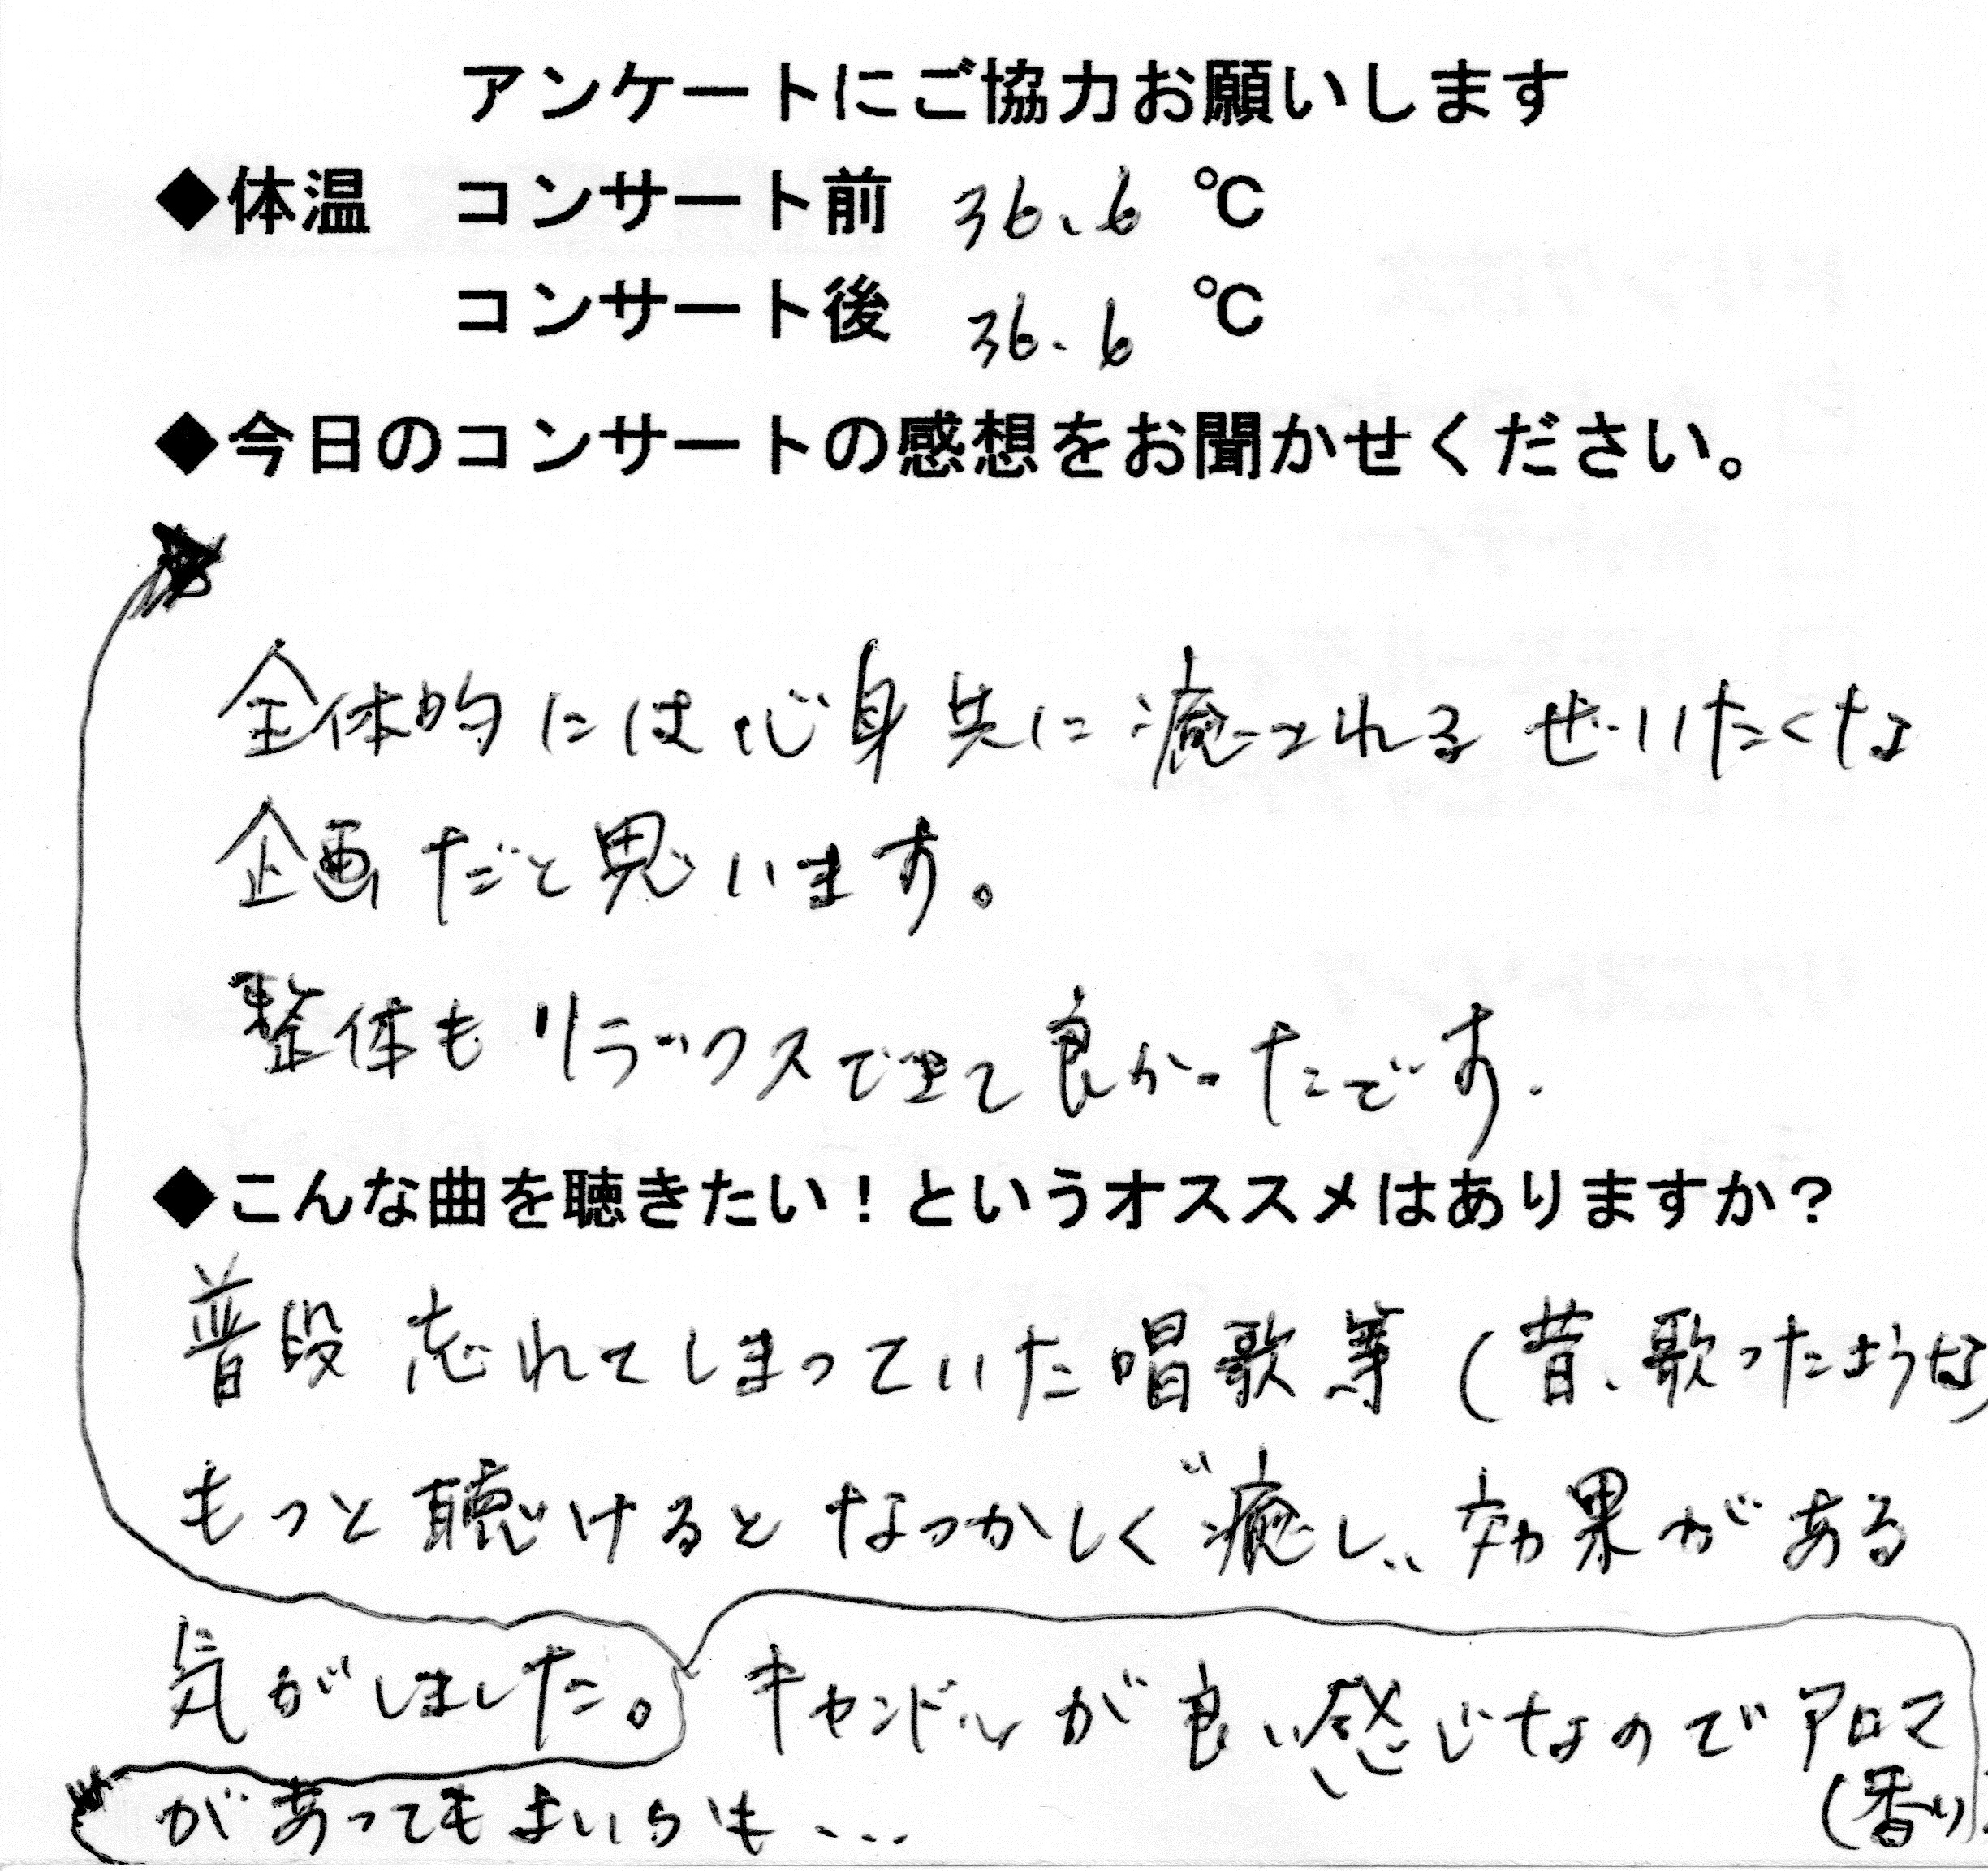 アンケートにご協力お願いします
◆体温　コンサート前　36.6　℃
コンサート後　36.6　℃
◆今日のコンサートの感想をお聞かせください。
全体的には心身共に癒されるぜいたくな
企画だと思います。
整体もリラックスできて良かったです.
◆こんな曲を聴きたい！というオススメはありますか？
普段忘れてしまっていた唱歌等(昔、歌ったような)
もっと聴けるとなつかしく"癒し"効果がある
気がしました。キャンドルが良い感じなのでアロマ
(香り)
があってもよいかも...